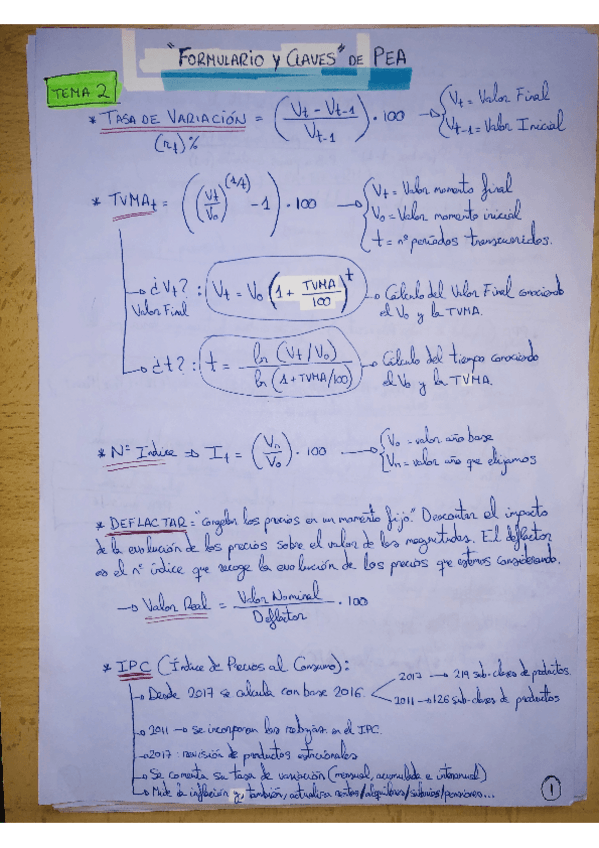 "FORMULARIO Y CLAVES" DE PEA
TEMA 2
* TASA DE VARIACIÓN = (Vt - Vt-1 / Vt-1) · 100 → Vt = Valor Final
(rt)% Vt-1 = Valor Inicial
* TVMAt = ((Vt/V0)^(1/t) - 1) · 100 → Vt = Valor momento final
V0 = Valor momento inicial
t = nº períodos transcurridos.
→ ¿Vt? : Vt = V0 (1 + TVMA/100)^t → Cálculo del Valor Final conociendo
Valor Final el V0 y la TVMA.
→ ¿t? : t = ln (Vt/V0) / ln (1+TVMA/100) → Cálculo del tiempo conociendo
el V0 y la TVMA.
* Nº Índice ⇒ It = (Vn/V0) · 100 → V0 = valor año base
Vn = valor año que elijamos
* DEFLACTAR = "Congelar los precios en un momento fijo". Descontar el impacto
de la evolución de los precios sobre el valor de las magnitudes. El deflactor
es el nº índice que recoge la evolución de los precios que estemos considerando.
→ Valor Real = Valor Nominal / Deflactor · 100
* IPC (Índice de Precios al Consumo):
→ Desde 2017 se calcula con base 2016. 2017 → 219 sub-clases de productos.
2011 → 126 sub-clases de productos
→ 2011 → se incorporan las rebajas en el IPC.
→ 2017 : revisión de productos estacionales
→ Se comenta su tasa de variación (mensual, acumulada e interanual)
→ Mide la inflación y, también, actualiza rentas/alquileres/salarios/pensiones...
1